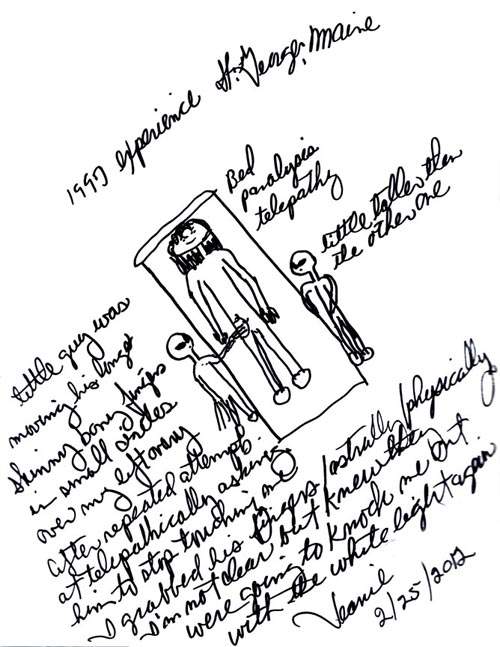 1997 experience St. George, Maine
Bed
paralysis
telepathy
little taller then
the other one
little guy was
moving his long
skinny bony fingers
in small circles
over my left ovary
after repeated attempts
at telepathically asking
him to stop touching me
I grabbed his fingers/astrally/physically
I'm not clear but knew they
were going to knock me out
with the white light again
Jeanie
2/25/2012